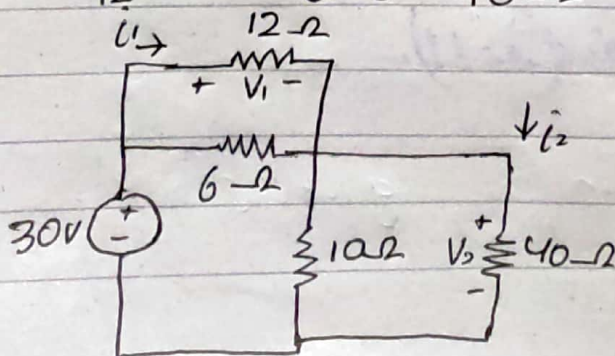 i1→ 12Ω
+ V1 −
↓i2
6Ω
30V + −
10Ω
+ V2 − 40Ω